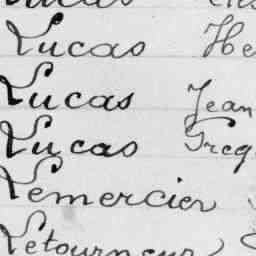 Lucas
Lucas He
Lucas Jean
Lucas Greg
Lemercier
Letourneur